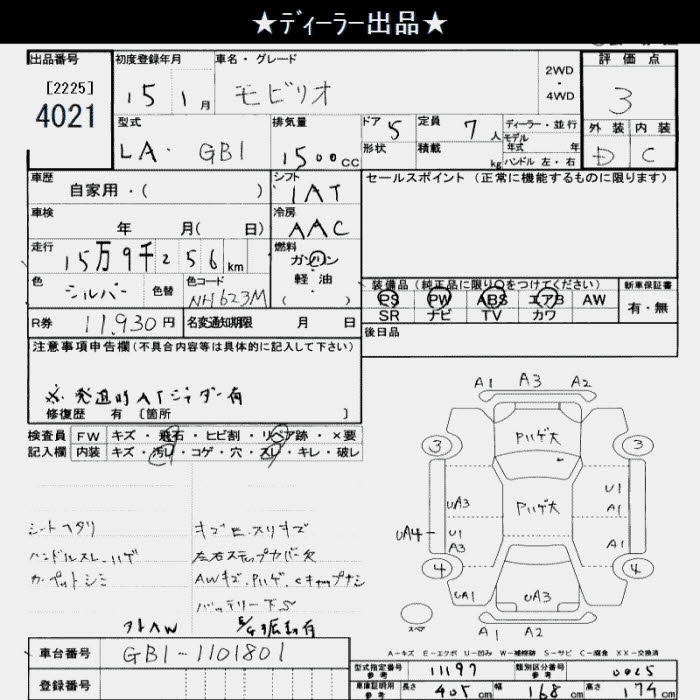 ★ディーラー出品★
出品番号
[2225]
4021
初度登録年月
15 1月
車名・グレード
モビリオ
2WD
・
4WD
評価点
3
外装 内装
D C
型式
LA・GB1
排気量
1500cc
ドア 5
形状
定員 7人
積載 kg
ディーラー・並行
モデル
年式 年
ハンドル 左・右
車歴
自家用・( )
シフト
IAT
セールスポイント (正常に機能するものに限ります)
車検
年 月( 日)
冷房
AAC
走行
15万9千256km
燃料
ガソリン
軽油
( )
色
シルバー
色替
色コード
NH623M
装備品 (純正品に限り○をつけてください)
PS PW ABS エアB AW
SR ナビ TV カワ
新車保証書
有・無
R券 11,930円
名変通知期限 月 日
後日品
注意事項申告欄 (不具合内容等は具体的に記入して下さい)
※発進時ATジャダー有
修復歴 有 [箇所 ]
検査員 FW キズ・飛石・ヒビ割・リペア跡・×要
記入欄 内装 キズ・汚レ・コゲ・穴・スレ・キレ・破レ
シートヘタリ
ハンドルスレ、ハゲ
カーペットシミ
キズ凹、スリキズ
左右ステップカバー欠
AWキズ、Pハゲ、Cキャップナシ
バッテリー下S
E/G振動有
A1 A3 A2
Pハゲ大
3 3
Pハゲ大
UA3
U1
A1
UA4
U1
A3
A1
4 4
UA1
UA3
U1
スペア
A1 A2
A-キズ E-エクボ U-凹み W-補修跡 S-サビ C-腐食 XX-交換済
車台番号
GB1-1101801
登録番号
型式指定番号
参考
11197
類別区分番号
参考
0025
車庫証明用
参考
長さ 405cm 幅 168cm 高さ 174cm